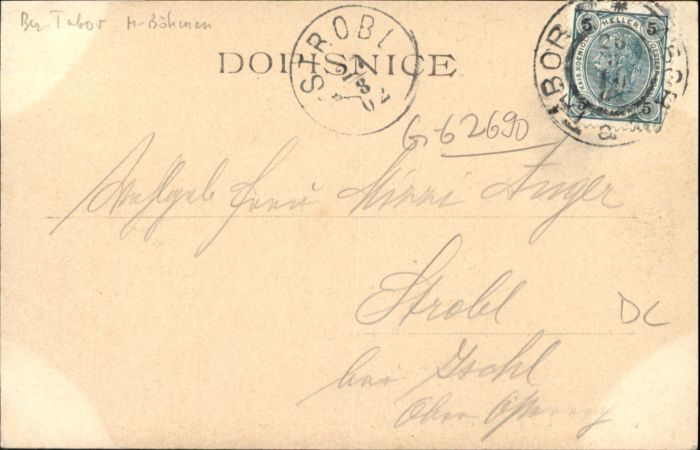 Bez. Tabor M-Böhmen
STROBL
DOPISNICE
5 HELLER 5
5 5
TABOR
a
G 62690
Frau Mizzi Anger
Strobl
DL
bei Ischl
Ober